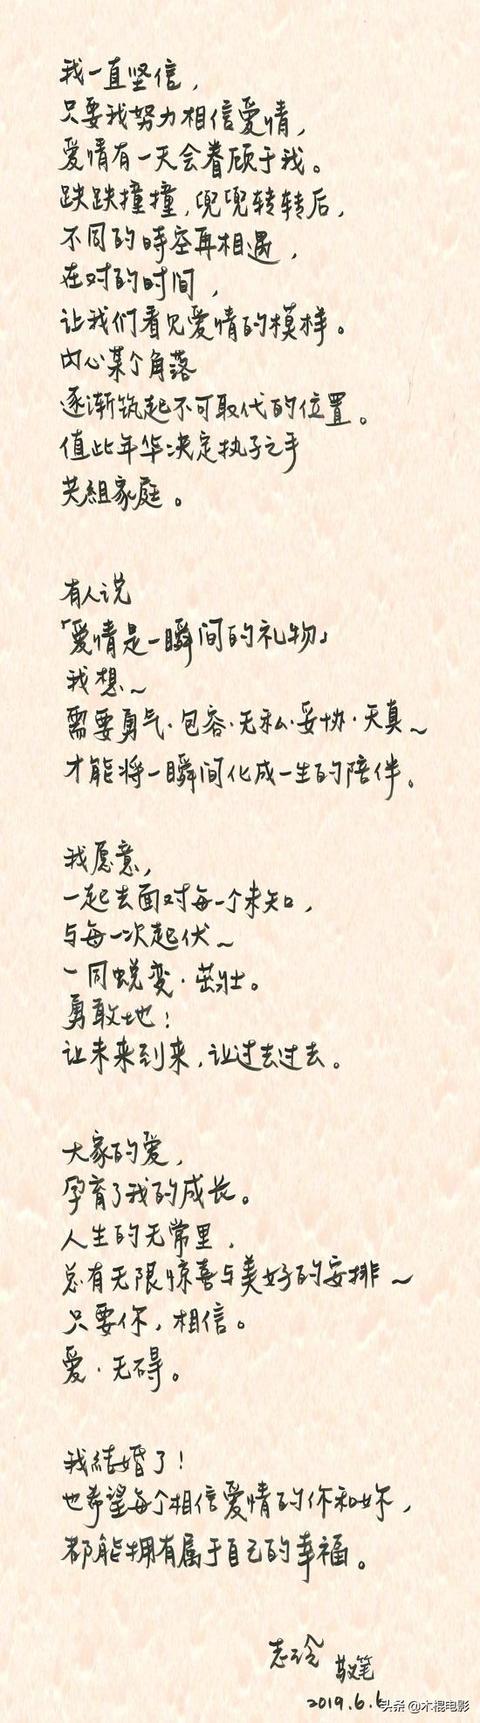 我一直坚信，
只要我努力相信爱情，
爱情有一天会眷顾于我。
跌跌撞撞，兜兜转转后，
不同的時空再相遇，
在对的时间，
让我们看见爱情的模样。
内心某个角落
逐渐筑起不可取代的位置。
值此年华决定执子之手
共組家庭。
有人说
「爱情是一瞬间的礼物」
我想~
需要勇气·包容·无私·妥协·天真~
才能将一瞬间化成一生的陪伴。
我愿意，
一起去面对每一个未知，
与每一次起伏~
一同蜕变·茁壮。
勇敢地！
让未来到来，让过去过去。
大家的爱，
孕育了我的成长。
人生的无常里，
总有无限惊喜与美好的安排~
只要你，相信。
爱·无碍。
我結婚了！
也希望每个相信爱情的你和妳，
都能拥有属于自己的幸福。
志玲 敬笔
2019.6.6
头条@木棍电影